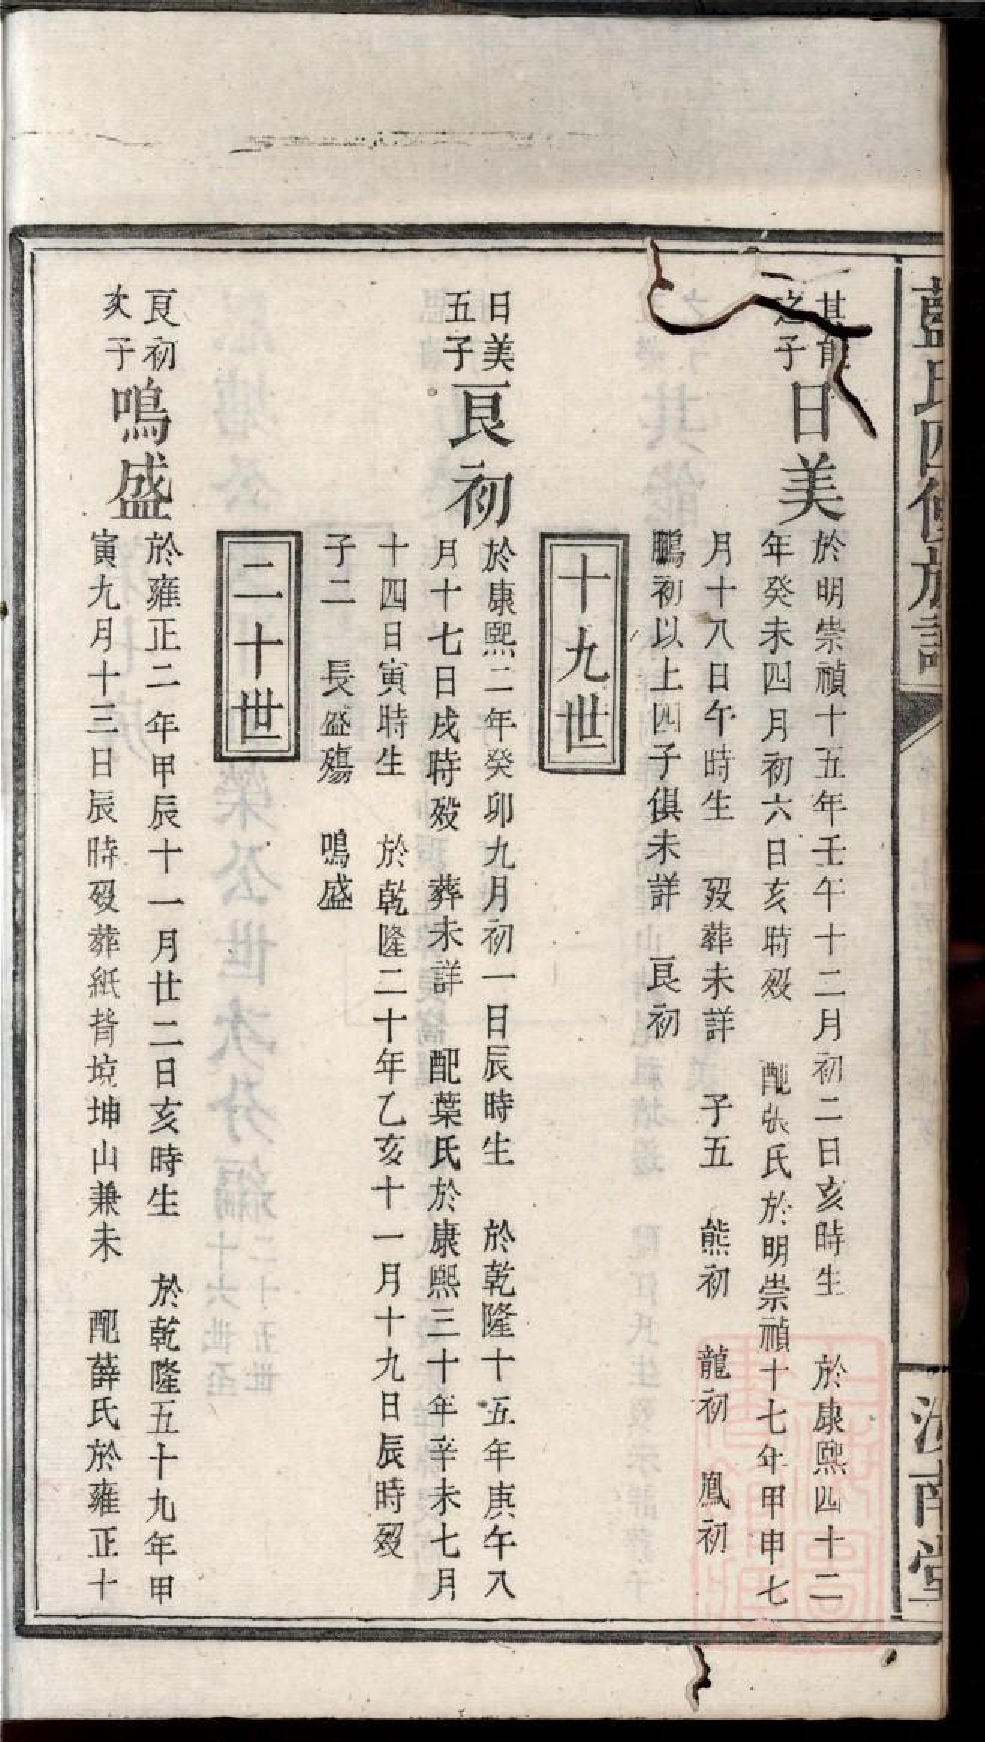 藍氏四修族譜
汝南堂
其能
之子
日美
於明崇禎十五年壬午十二月初二日亥時生 於康熙四十二
年癸未四月初六日亥時歿 配張氏於明崇禎十七年甲申七
月十八日午時生 歿葬未詳 子五 熊初 龍初 鳳初
鵬初以上四子俱未詳 艮初
十九世
日美
五子
艮初
於康熙二年癸卯九月初一日辰時生 於乾隆十五年庚午八
月十七日戌時歿 葬未詳 配葉氏於康熙三十年辛未七月
十四日寅時生 於乾隆二十年乙亥十一月十九日辰時歿
子二 長盛殤 鳴盛
二十世
艮初
次子
鳴盛
於雍正二年甲辰十一月廿二日亥時生 於乾隆五十九年甲
寅九月十三日辰時歿葬紙背境坤山兼未 配薛氏於雍正十